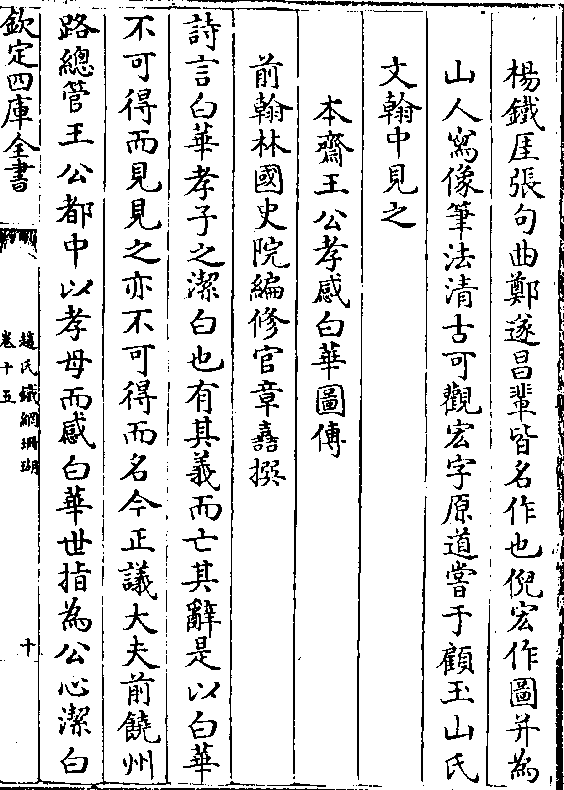 楊鐵厓張句曲鄭遂昌輩皆名作也倪宏作圖并為
山人寫像筆法清古可觀宏字原道嘗于顧玉山氏
文翰中見之
本齋王公孝感白華圖傳
前翰林國史院編修官章嚞撰
詩言白華孝子之潔白也有其義而亡其辭是以白華
不可得而見見之亦不可得而名今正議大夫前饒州
路總管王公都中以孝母而感白華世指為公心潔白
欽定四庫全書
趙氏鐵網珊瑚
卷十五
十